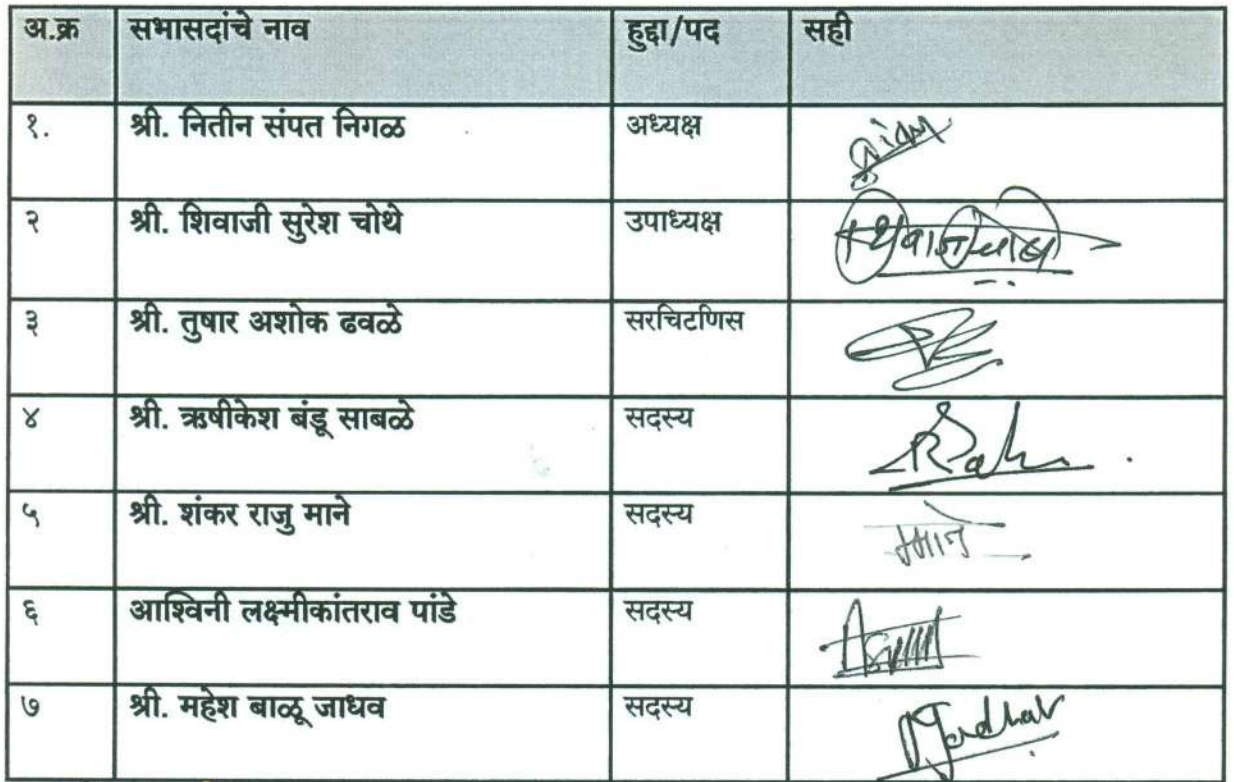 अ.क्र सभासदांचे नाव हुद्दा/पद सही
१. श्री. नितीन संपत निगळ अध्यक्ष
२ श्री. शिवाजी सुरेश चोथे उपाध्यक्ष
३ श्री. तुषार अशोक ढवळे सरचिटणिस
४ श्री. ऋषीकेश बंडू साबळे सदस्य
५ श्री. शंकर राजु माने सदस्य माने
६ आश्विनी लक्ष्मीकांतराव पांडे सदस्य
७ श्री. महेश बाळू जाधव सदस्य